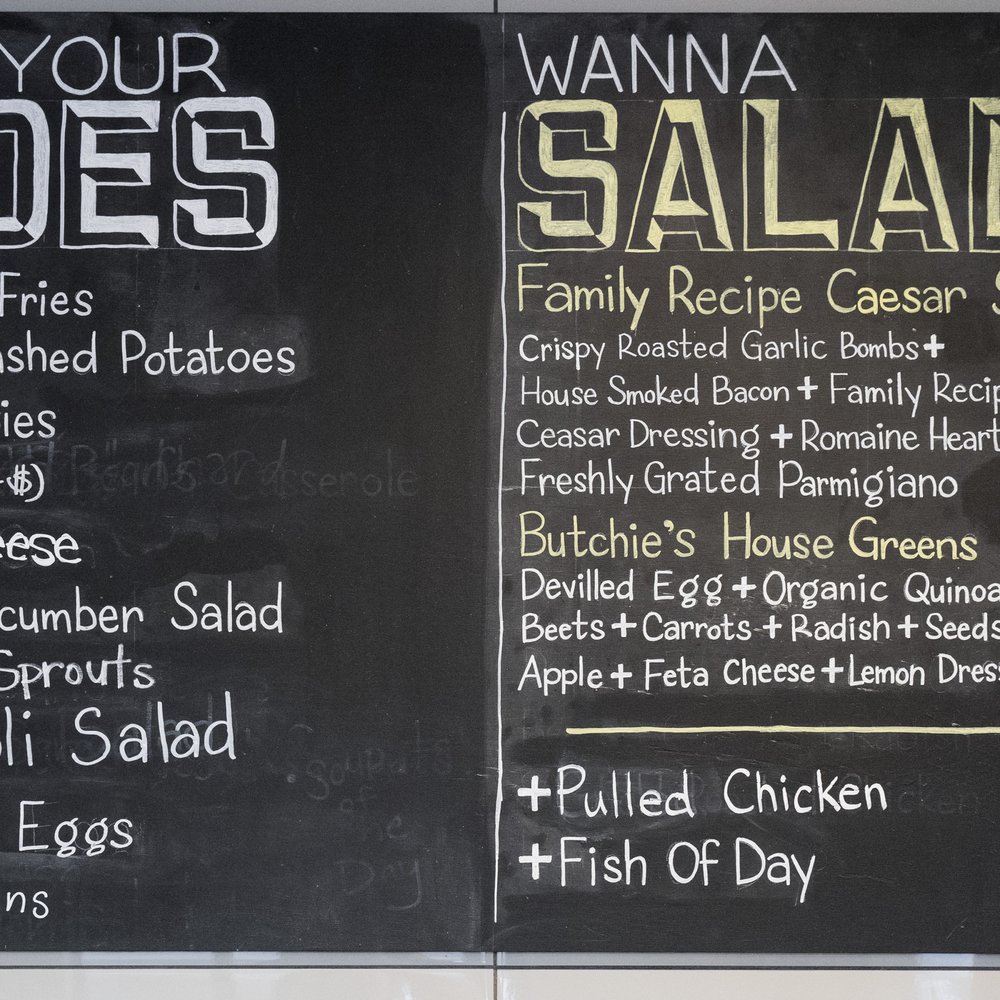 YOUR
DES
Fries
ashed Potatoes
ies
$)
eese
cumber Salad
Sprouts
li Salad
Eggs
ns
WANNA
SALAD
Family Recipe Caesar S
Crispy Roasted Garlic Bombs+
House Smoked Bacon + Family Recip
Ceasar Dressing + Romaine Heart
Freshly Grated Parmigiano
Butchie's House Greens
Devilled Egg + Organic Quinoa
Beets + Carrots + Radish + Seeds
Apple + Feta Cheese + Lemon Dress
+Pulled Chicken
+Fish Of Day